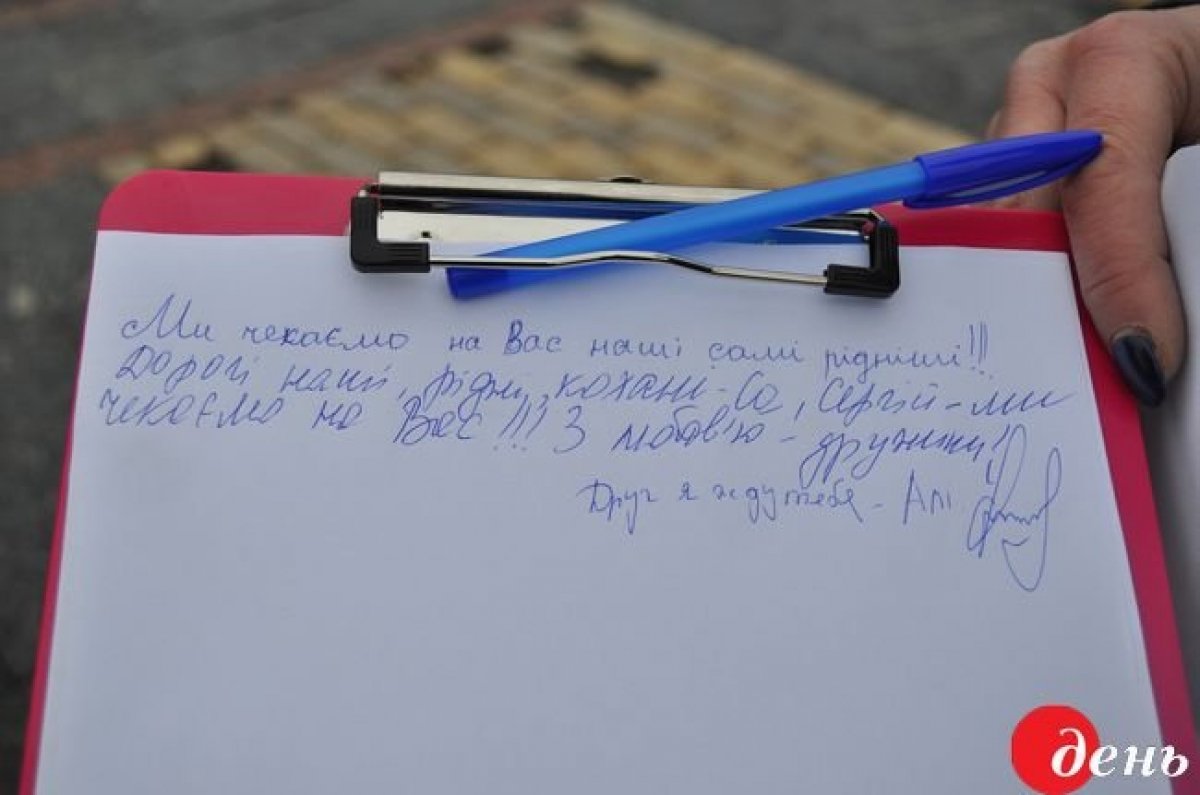 Ми чекаємо на Вас наші самі рідніші!!!
Дорогі наші, рідні, кохані - Са, Сергій - ми
чекаємо на Вас!!! З любов'ю - дружини!
Друг я жду тебя - Алі
день